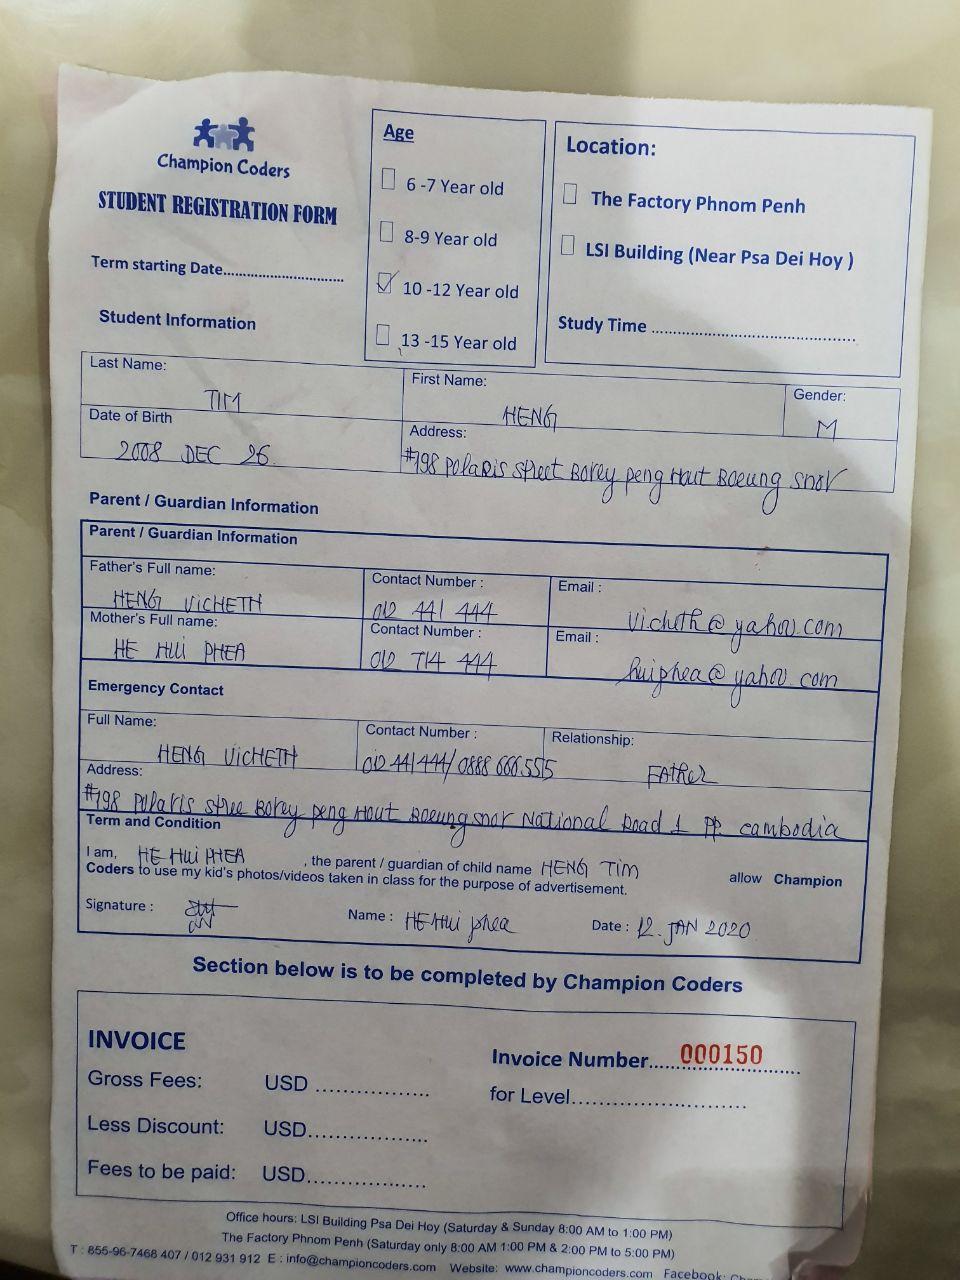 Champion Coders
STUDENT REGISTRATION FORM
Term starting Date..............................
Student Information
Age
6 -7 Year old
8-9 Year old
10 -12 Year old
13 -15 Year old
Location:
The Factory Phnom Penh
LSI Building (Near Psa Dei Hoy )
Study Time ............................................
Last Name: TIM
First Name: HENG
Gender: M
Date of Birth 2008 DEC 26
Address: #198 Polaris street Borey peng Hout Boeung snor
Parent / Guardian Information
Parent / Guardian Information
Father's Full name: HENG VICHETH
Contact Number : 012 441 444
Email : vicheth@yahoo.com
Mother's Full name: HE HUI PHEA
Contact Number : 012 714 444
Email : huiphea@yahoo.com
Emergency Contact
Full Name: HENG VICHETH
Contact Number : 012 441444/0888 666 555
Relationship: FAtHer
Address:
#198 Polaris stree Borey peng Hout Boeung snor National Road 1 PP cambodia
Term and Condition
I am, HE HUi PHEA , the parent / guardian of child name HENG TIM allow Champion
Coders to use my kid's photos/videos taken in class for the purpose of advertisement.
Signature :
Name : HE Hui phea
Date : 12. JAN 2020
Section below is to be completed by Champion Coders
INVOICE
Invoice Number.... 000150
Gross Fees: USD ..................
for Level............................
Less Discount: USD...................
Fees to be paid: USD...................
Office hours: LSI Building Psa Dei Hoy (Saturday & Sunday 8:00 AM to 1:00 PM)
The Factory Phnom Penh (Saturday only 8:00 AM 1:00 PM & 2:00 PM to 5:00 PM)
T : 855-96-7468 407 / 012 931 912 E : info@championcoders.com Website: www.championcoders.com Facebook: